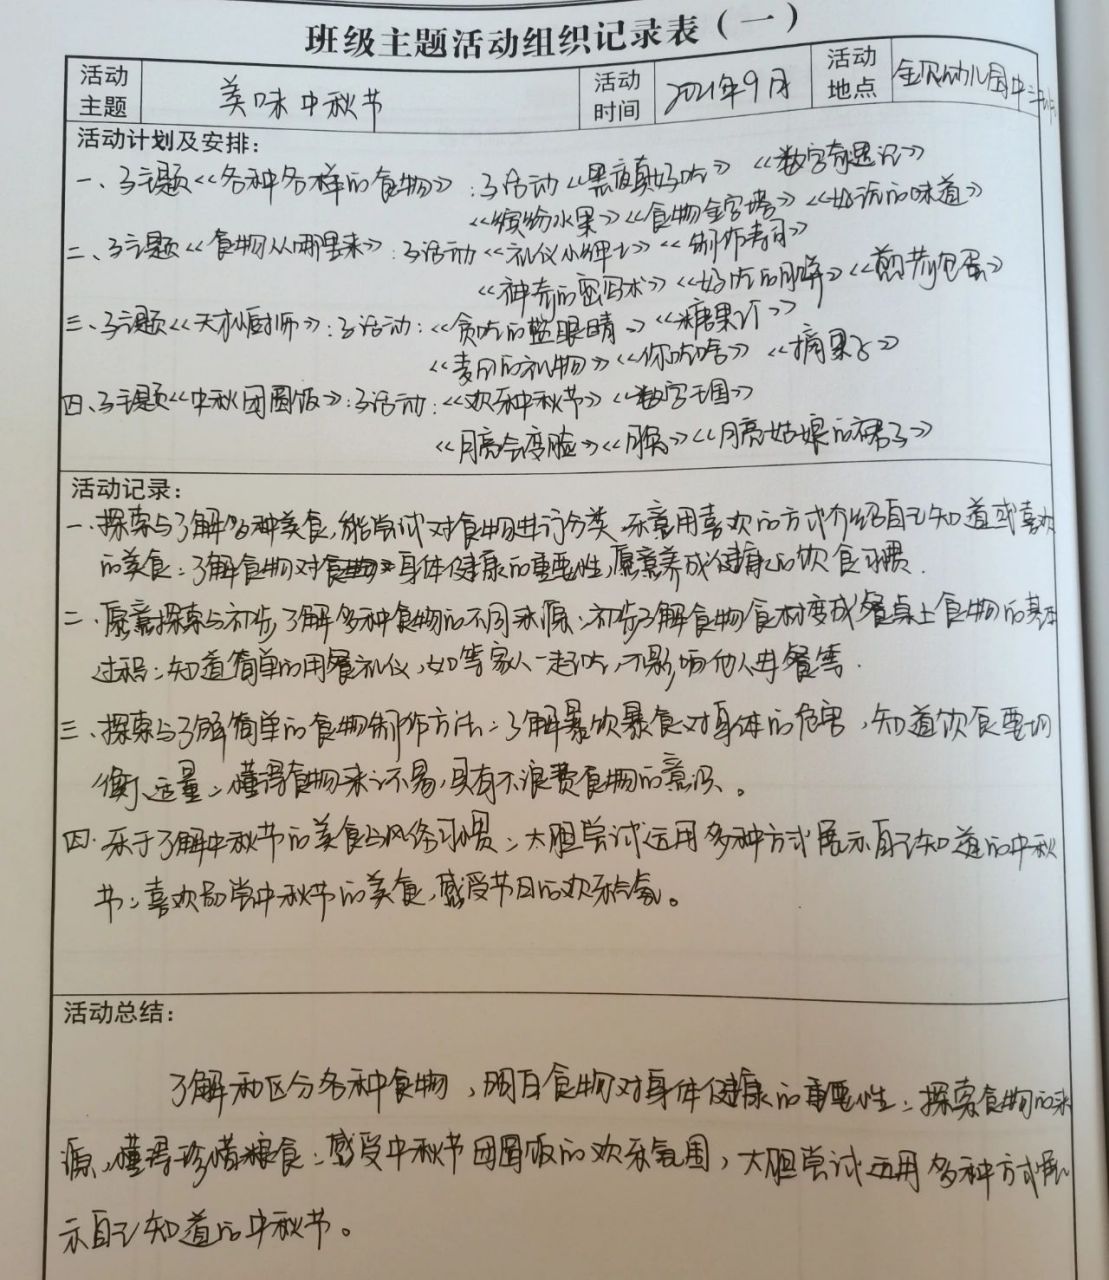 班级主题活动组织记录表（一）
活动主题 美味中秋节 活动时间 2021年9月 活动地点 幼儿园中二班
活动计划及安排：
一、子主题《各种各样的食物》：子活动《真好吃》《数字奇遇记》
《缤纷水果》《食物金字塔》《好玩的味道》
二、子主题《食物从哪里来》：子活动《礼仪小绅士》《制作寿司》
《神奇的密码术》《好吃的月饼》《煎荷包蛋》
三、子主题《天才厨师》：子活动：《贪吃的蓝眼睛》《糖果》
《麦田的礼物》《你吃啥》《摘果子》
四、子主题《中秋团圆饭》：子活动：《欢乐中秋节》《数字王国》
《月亮会变脸》《月亮姑娘的裙子》
活动记录：
一、探索与了解各种美食，能尝试对食物进行分类，乐意用喜欢的方式介绍自己知道或喜欢
的美食；了解食物对身体健康的重要性，愿意养成健康的饮食习惯．
二、愿意探索与初步了解多种食物的不同来源；初步了解食物食材变成餐桌上食物的基本
过程；知道简单的用餐礼仪，如等家人一起吃，不影响他人进餐等．
三、探索与了解简单的食物制作方法；了解暴饮暴食对身体的危害，知道饮食要均
衡、适量；懂得食物来之不易，具有不浪费食物的意识。
四、乐于了解中秋节的美食与风俗习惯；大胆尝试运用多种方式展示自己知道的中秋
节；喜欢品尝中秋节的美食，感受节日的欢乐气氛。
活动总结：
了解和区分各种食物，明白食物对身体健康的重要性；探索食物的来
源，懂得珍惜粮食；感受中秋节团圆饭的欢乐氛围，大胆尝试运用多种方式展
示自己知道的中秋节。